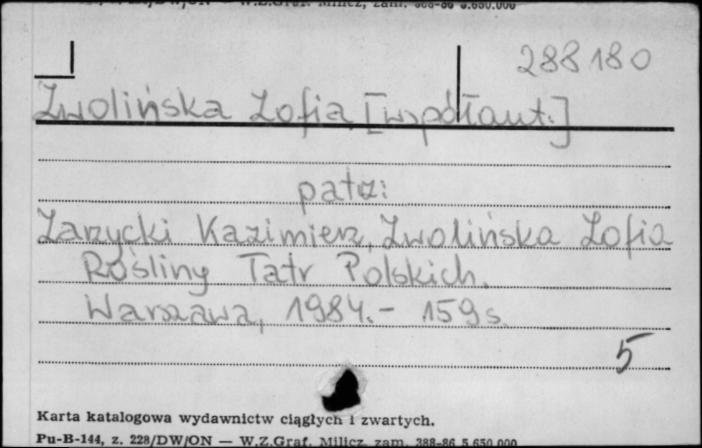 W.Z.Graf. Milicz, zam. 388-86 5.650.000
288180
Zwolińska Zofia [współaut.]
patrz:
Zarzycki Kazimierz, Zwolińska Zofia
Rośliny Tatr Polskich.
Warszawa, 1984.- 159 s.
5
Karta katalogowa wydawnictw ciągłych i zwartych.
Pu-B-144, z. 228/DW/ON — W.Z.Graf. Milicz, zam. 388-86 5.650.000